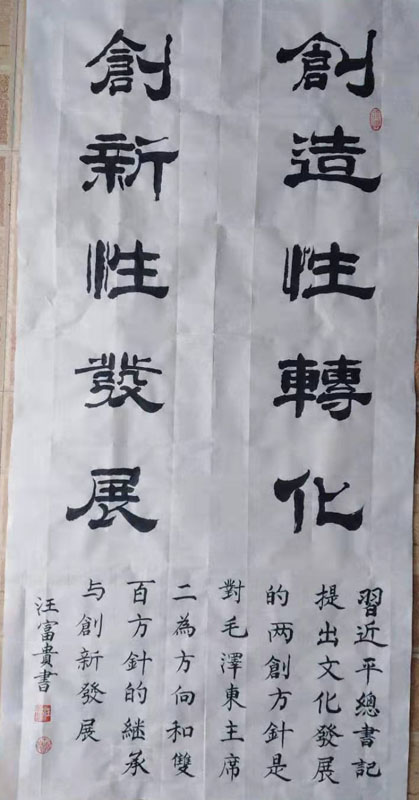 創造性轉化
創新性發展
習近平總書記
提出文化發展
的两創方針是
對毛澤東主席
二為方向和雙
百方針的継承
与創新發展
汪富貴書